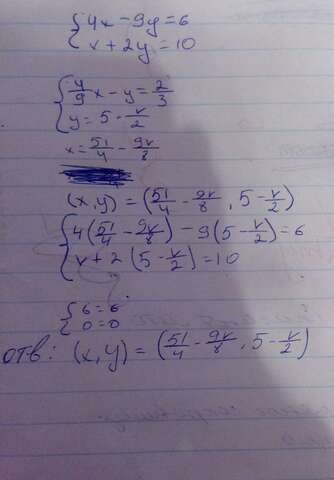 {4x - 9y = 6
{v + 2y = 10
{4/9 x - y = 2/3
{y = 5 - v/2
x = 51/4 - 9v/8
(x,y) = (51/4 - 9v/8 , 5 - v/2)
{4(51/4 - 9v/8) - 9(5 - v/2) = 6
{v + 2(5 - v/2) = 10
{6 = 6
{0 = 0
отв: (x,y) = (51/4 - 9v/8 , 5 - v/2)